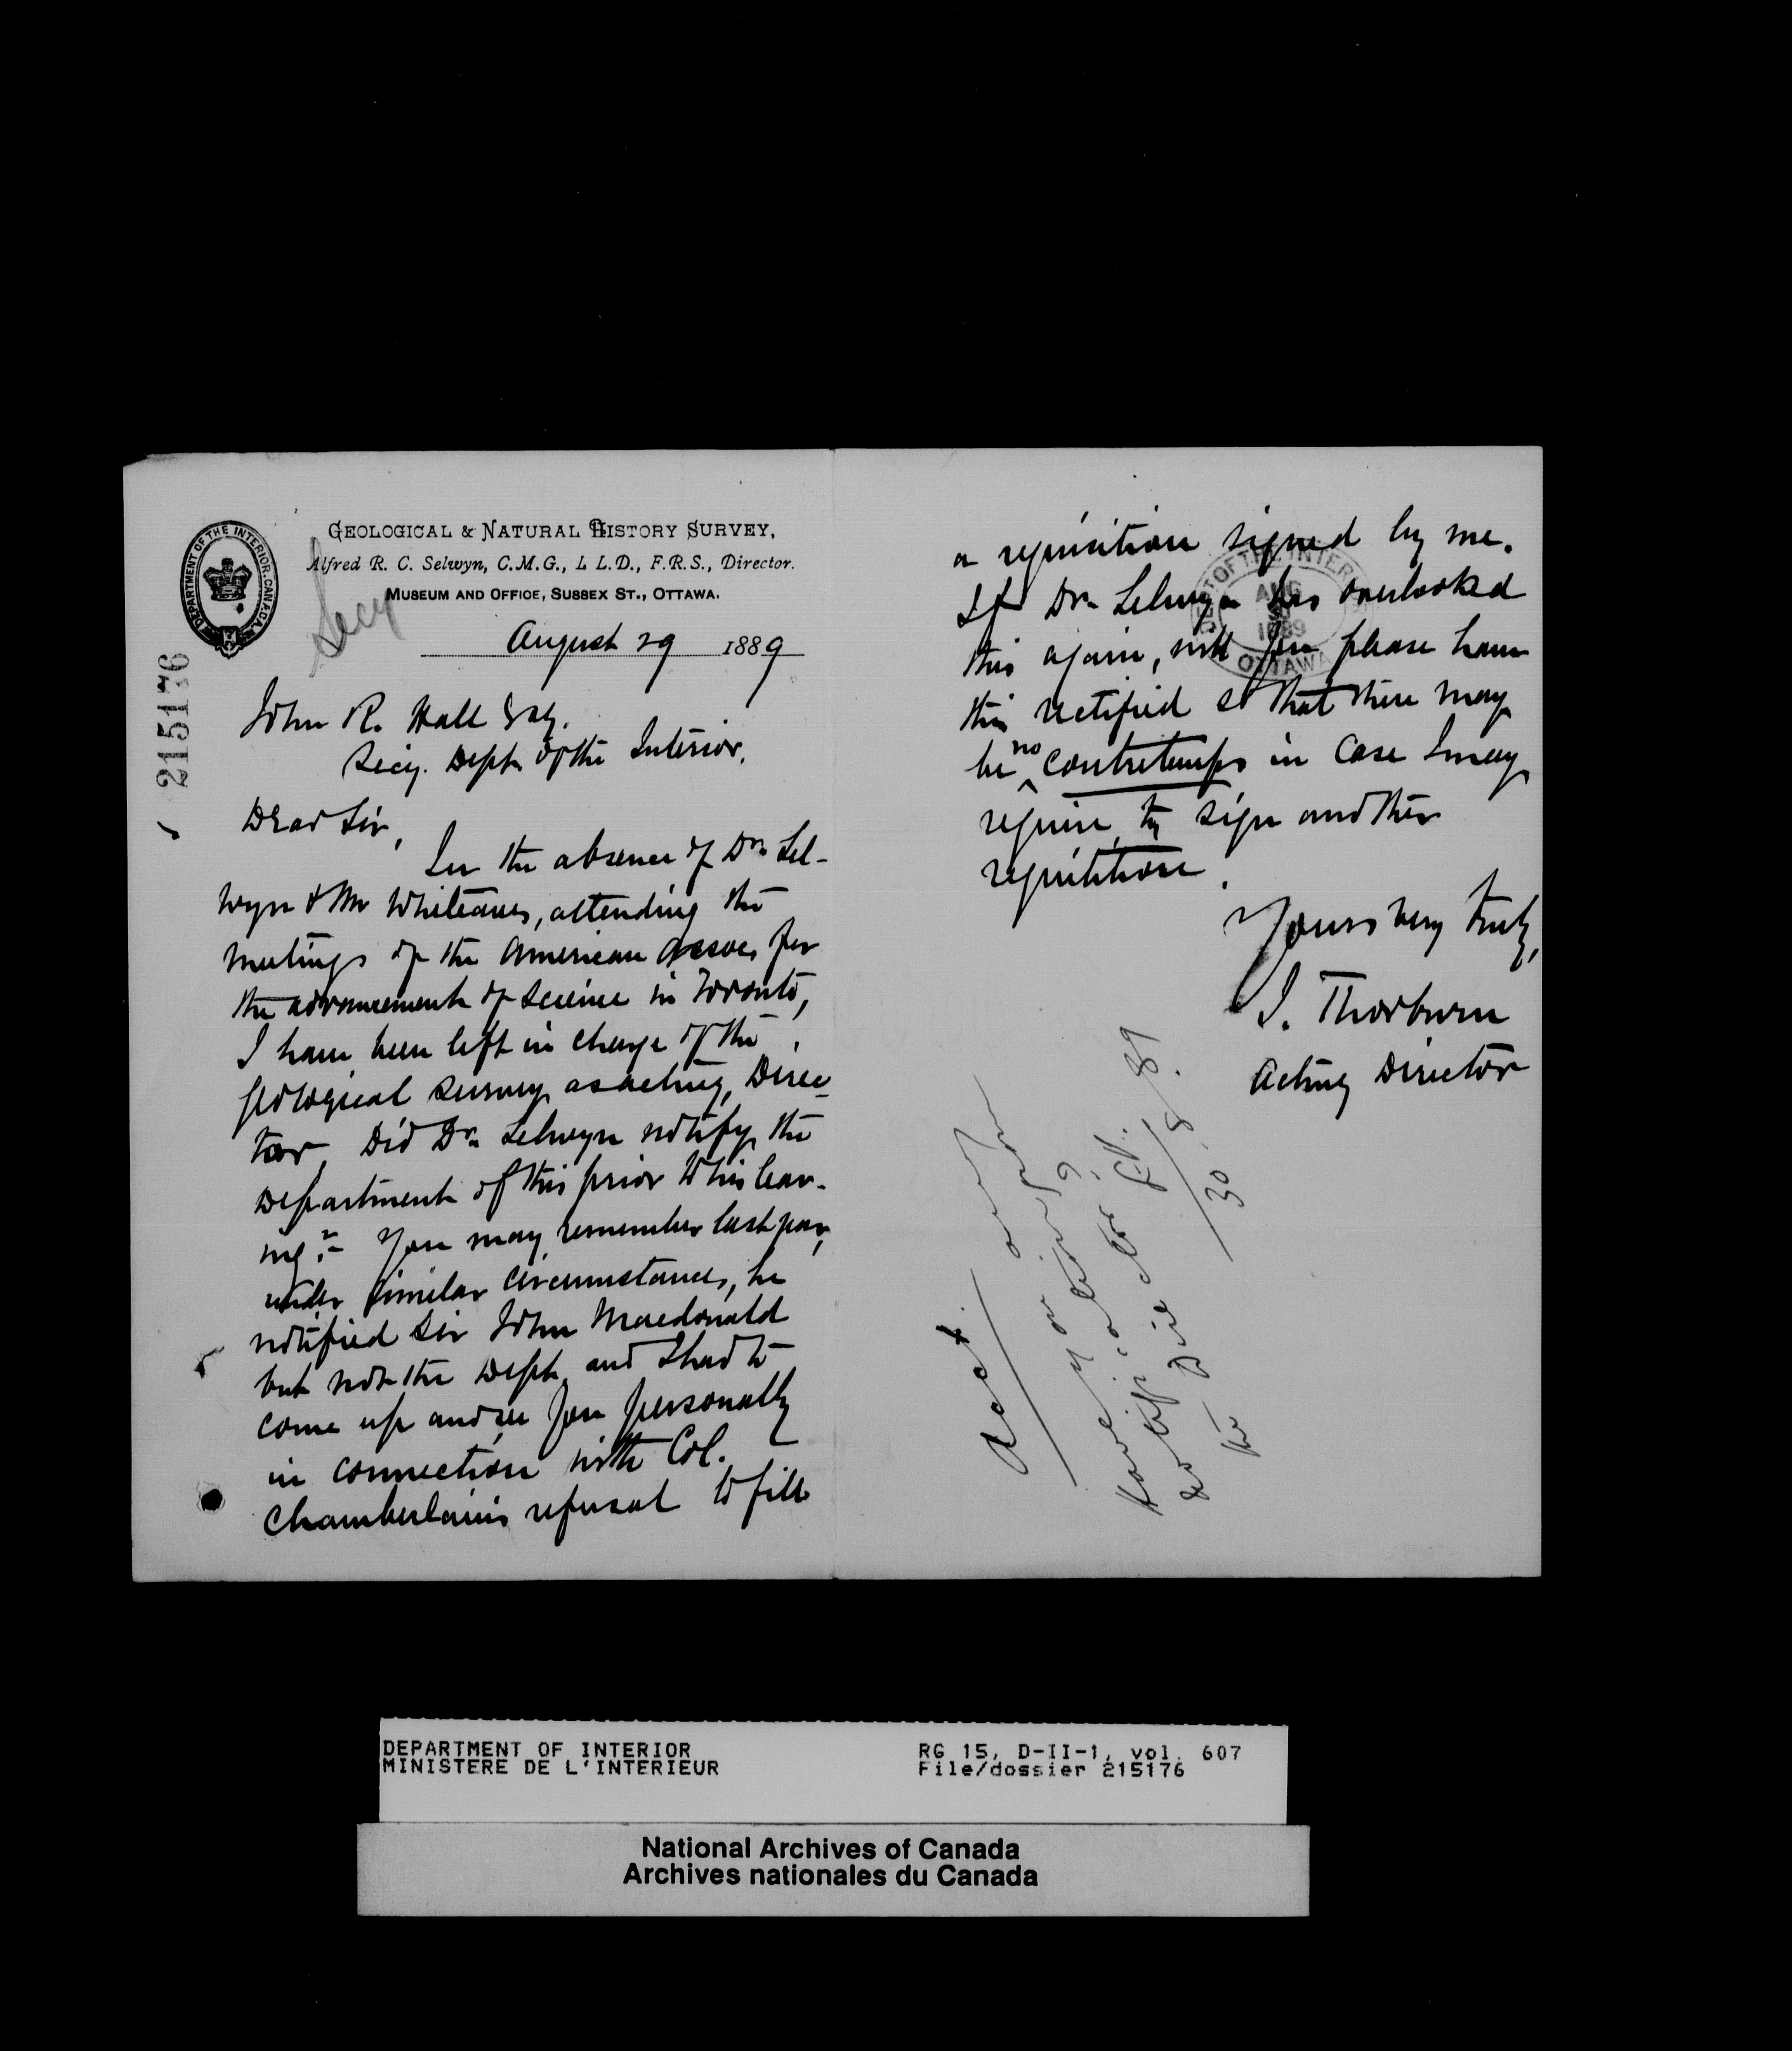 GEOLOGICAL & NATURAL HISTORY SURVEY,
Alfred R. C. Selwyn, C.M.G., L L.D., F.R.S., Director.
MUSEUM AND OFFICE, SUSSEX ST., OTTAWA.
DEPARTMENT OF THE INTERIOR. CANADA.
Secy
August 29 1889
215176
John R. Hall Esq.
Secy. Dept. of the Interior.
Dear Sir,
In the absence of Dr. Sel-
wyn & Mr Whiteaves, attending the
meetings of the American Assoc. for
the advancement of Science in Toronto,
I have been left in charge of the
Geological Survey as acting Direc-
tor Did Dr. Selwyn notify the
Department of this prior to his leav-
ing?- You may remember last year,
under similar circumstances, he
notified Sir John Macdonald
but not the Dept. and I had to
come up and see you personally
in connection with Col.
Chamberlain's refusal to fill
a requisition signed by me.
If Dr. Selwyn has overlooked
this again, will you please have
this rectified so that there may
be no contretemps in case I may
require to sign another
requisition.
Yours very truly,
J. Thorburn
Acting Director
DEPT OF THE INTERIOR
AUG
1889
OTTAWA
Acct.
Have you
30/8/89
DEPARTMENT OF INTERIOR
MINISTERE DE L'INTERIEUR
RG 15, D-II-1, vol. 607
File/dossier 215176
National Archives of Canada
Archives nationales du Canada